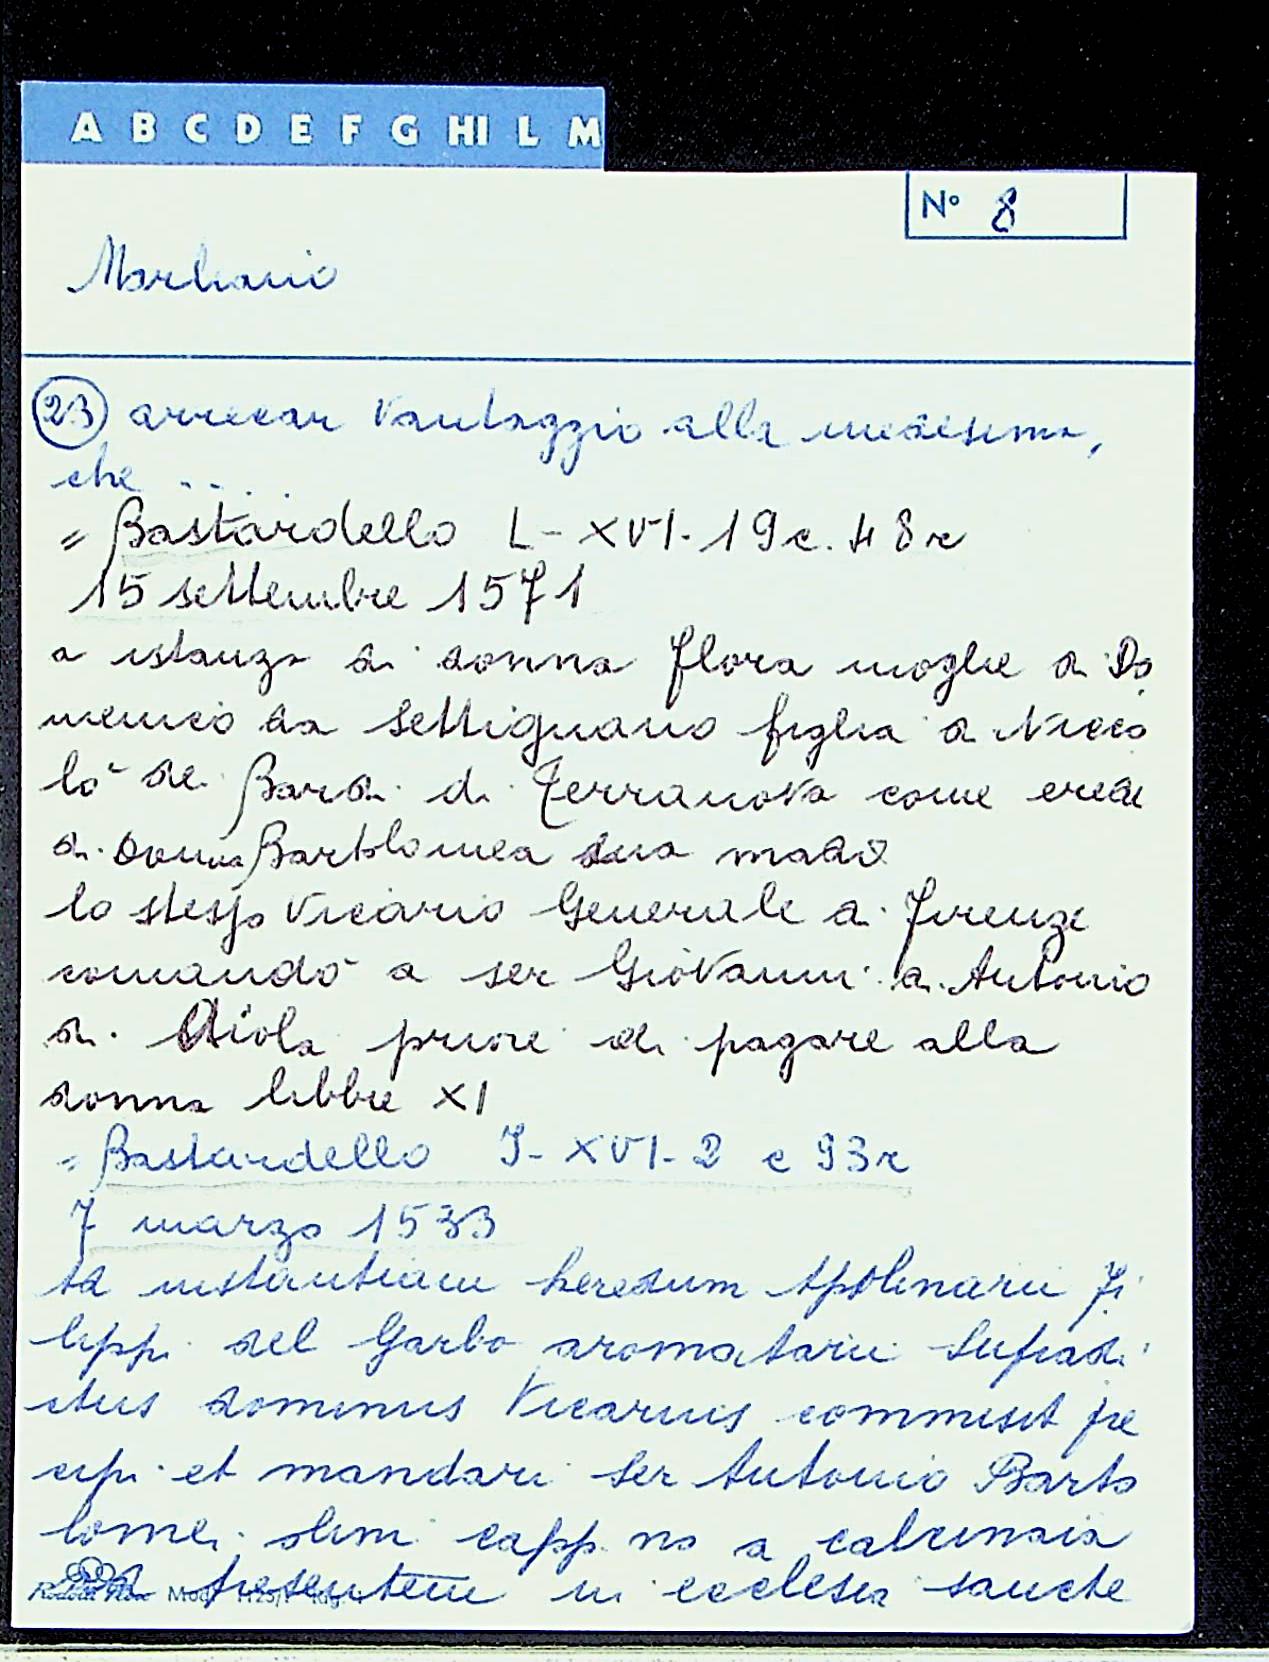 A B C D E F G HI L M
N° 8
Marliano
23 arrecar vantaggio alla medesima,
che ....
= Bastardello L-XVI-19 c. 48r
15 settembre 1571
a istanza di donna Flora moglie di Do
menico da Settignano figlia di Nicco
lò de Bardi di Terranova come erede
di donna Bartolomea sua madre
lo stesso Vicario Generale di Firenze
comandò a ser Giovanni di Antonio
di priore di pagare alla
donna libbre XI
= Bastardello I-XVI-2 c 93r
7 marzo 1533
ad instantiam heredum Apolinarii Fi
lippi del Garbo aromatarii Supradi
ctus dominus Vicarius commisit pre
cipi et mandari ser Antonio Barto
lomei olim capp.no a calcinaia
ad presentem in ecclesia sancte